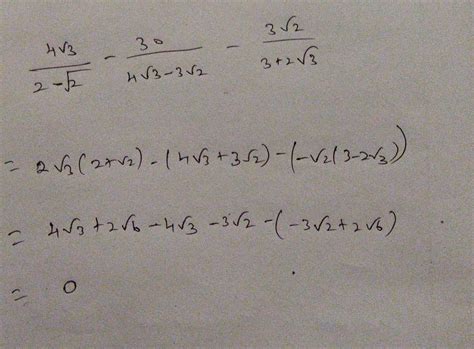 4√3/2-√2 - 30/4√3-3√2 - 3√2/3+2√3
= 2√3(2+√2) - (4√3+3√2) - (-√2(3-2√3))
= 4√3+2√6-4√3-3√2-(-3√2+2√6)
= 0